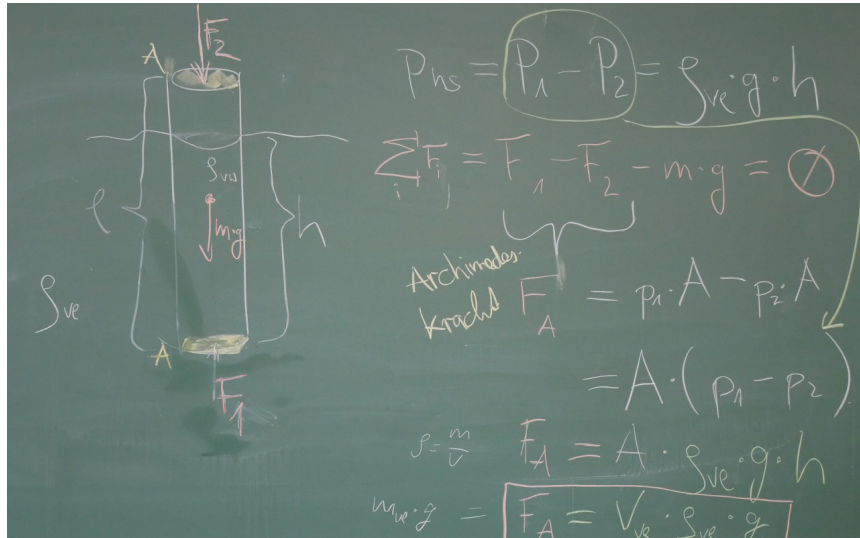 F₂
A
ρ_vw
l
m·g
h
ρ_ve
A
F₁
P_hs = P₁ − P₂ = ρ_ve·g·h
∑_i F_i = F₁ − F₂ − m·g = ∅
Archimedes-
kracht
F_A = p₁·A − p₂·A
= A·(p₁ − p₂)
ρ = m/V F_A = A·ρ_ve·g·h
m_ve·g = F_A = V_ve·ρ_ve·g